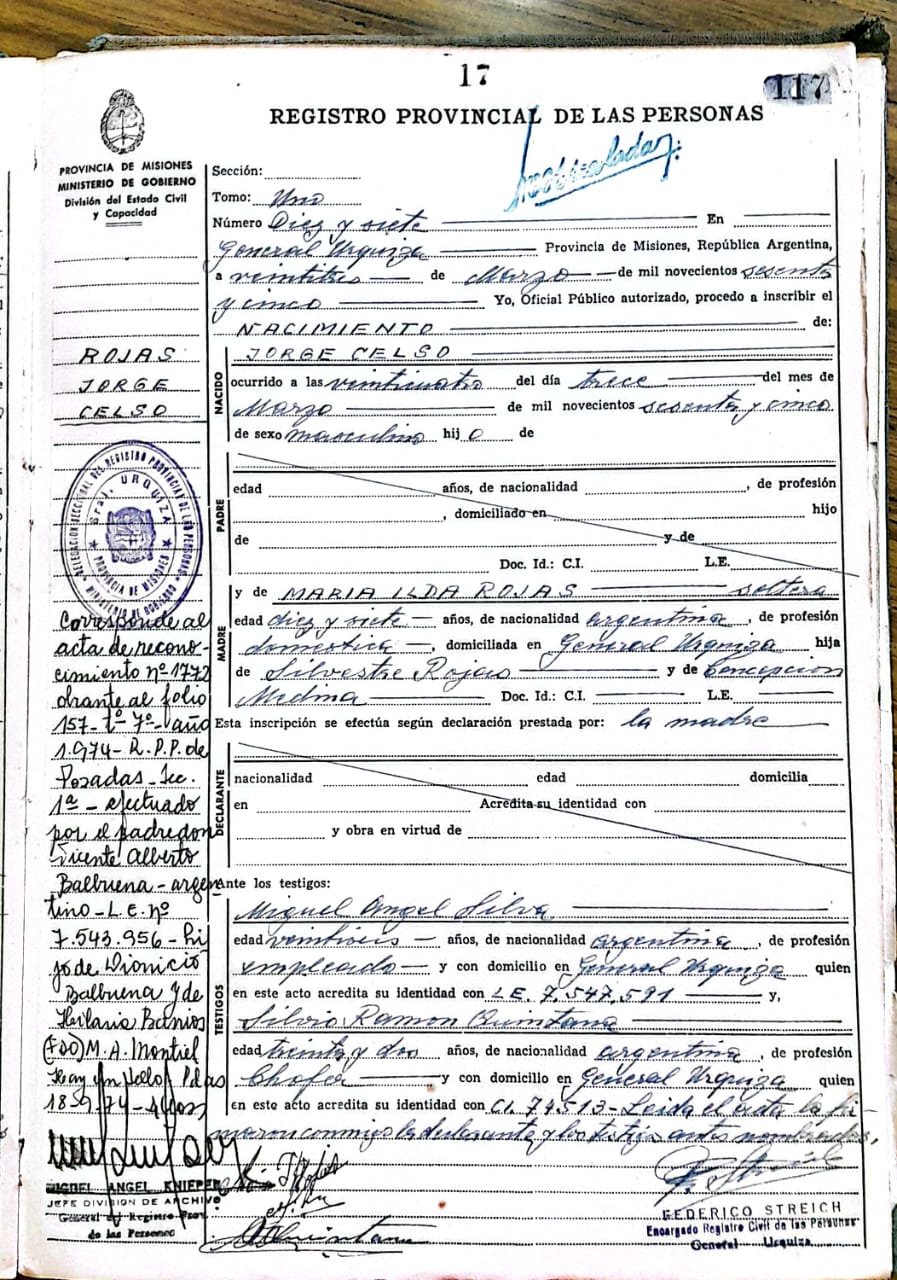 17
117
REGISTRO PROVINCIAL DE LAS PERSONAS
PROVINCIA DE MISIONES
MINISTERIO DE GOBIERNO
División del Estado Civil
y Capacidad
ROJAS
JORGE
CELSO
DELEGACION SECCIONAL DEL REGISTRO PROVINCIAL DE LAS PERSONAS
Gral. URQUIZA
PROVINCIA DE MISIONES
MINISTERIO DE GOBIERNO
Corresponde al
acta de recono-
cimiento nº 1772
obrante al folio
157 - tº 7º - año
1.974 - R.P.P. de
Posadas - Sec.
1ª - efectuado
por el padre don
Vicente Alberto
Balbuena - argen
tino - L.E. nº
7.543.956 - hi
jo de Dionicio
Balbuena y de
Hilaria Barrios
(FDO) M. A. Montiel
Hay un sello Pdas
MIGUEL ANGEL KNIEPER
JEFE DIVISION DE ARCHIVO
General del Registro Prov.
de las Personas
Sección:
Tomo: Uno
Número Diez y siete En
General Urquiza Provincia de Misiones, República Argentina,
a veintitres de Marzo de mil novecientos sesenta
y cinco Yo, Oficial Público autorizado, procedo a inscribir el
NACIMIENTO de:
NACIDO
JORGE CELSO
ocurrido a las veinticuatro del día trece del mes de
Marzo de mil novecientos sesenta y cinco
de sexo masculino hijo de
PADRE
edad años, de nacionalidad , de profesión
, domiciliado en hijo
de y de
Doc. Id.: C.I. L.E.
MADRE
y de MARIA ILDA ROJAS soltera
edad diez y siete años, de nacionalidad argentina, de profesión
domestica, domiciliada en General Urquiza hija
de Silvestre Rojas y de Concepcion
Medina Doc. Id.: C.I. L.E.
Esta inscripción se efectúa según declaración prestada por: la madre
DECLARANTE
nacionalidad edad domicilia
en Acredita su identidad con
y obra en virtud de
Ante los testigos:
TESTIGOS
Miguel Angel Silva
edad años, de nacionalidad argentina, de profesión
empleado y con domicilio en General Urquiza quien
en este acto acredita su identidad con L.E. 7.547.591 y,
Silvio Ramon Quintana
edad treinta y dos años, de nacionalidad argentina, de profesión
Chofer y con domicilio en General Urquiza quien
en este acto acredita su identidad con C.I. 74513 - Leida el acta la fir
maron conmigo la declarante y los testigos antes nombrados,
FEDERICO STREICH
Encargado Registro Civil de las Personas
General Urquiza